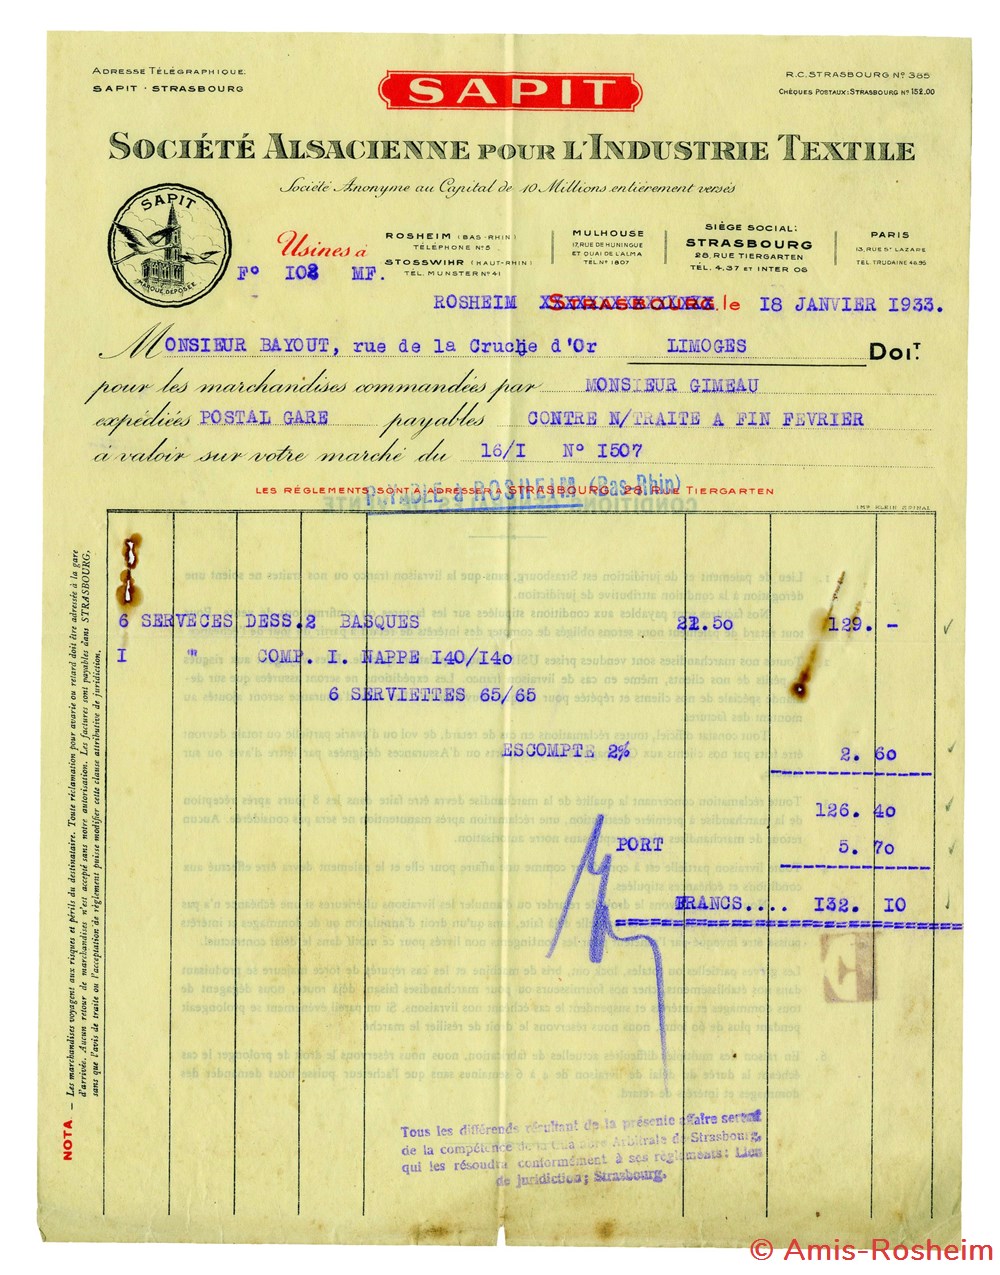 ADRESSE TÉLÉGRAPHIQUE.
SAPIT - STRASBOURG
SAPIT
R.C. STRASBOURG Nº 365
CHÈQUES POSTAUX: STRASBOURG Nº 152.00
SOCIÉTÉ ALSACIENNE POUR L'INDUSTRIE TEXTILE
Société Anonyme au Capital de 10 Millions entièrement versés
SAPIT
MARQUE DÉPOSÉE
Usines à
ROSHEIM (BAS-RHIN)
TÉLÉPHONE Nº 5
STOSSWIHR (HAUT-RHIN)
TÉL. MUNSTER Nº 41
MULHOUSE
17, RUE DE HUNINGUE
ET QUAI DE L'ALMA
TÉL. Nº 1807
SIÈGE SOCIAL:
STRASBOURG
28, RUE TIERGARTEN
TÉL. 4.37 ET INTER 06
PARIS
13, RUE ST LAZARE
TEL. TRUDAINE 46.95
Fº 108 MF.
ROSHEIM STRASBOURG, le 18 JANVIER 1933.
MONSIEUR BAYOUT, rue de la Cruche d'Or LIMOGES DOIT.
pour les marchandises commandées par MONSIEUR GIMEAU
expédiées POSTAL GARE payables CONTRE N/TRAITE A FIN FEVRIER
à valoir sur votre marché du 16/I Nº I507
LES RÉGLEMENTS SONT A ADRESSER A STRASBOURG, 28, RUE TIERGARTEN
PAYABLE à ROSHEIM (Bas-Rhin)
IMP. KLEIN EPINAL
6 SERVECES DESS.2 BASQUES 21.50 129. -
I " COMP. I. NAPPE I40/I40
6 SERVIETTES 65/65
ESCOMPTE 2% 2. 60
126. 40
PORT 5. 70
FRANCS.... 132. 10
F
Tous les différends résultant de la présente affaire seront
de la compétence de la Chambre Arbitrale de Strasbourg,
qui les résoudra conformément à ses règlements: Lieu
de juridiction; Strasbourg.
NOTA — Les marchandises voyagent aux risques et périls du destinataire. Toute réclamation pour avarie ou retard doit être adressée à la gare
d'arrivée. Aucun retour de marchandises n'est accepté sans notre autorisation. Les factures sont payables dans STRASBOURG,
sans que l'avis de traite ou l'acceptation de règlement puisse modifier cette clause attributive de juridiction.
© Amis-Rosheim